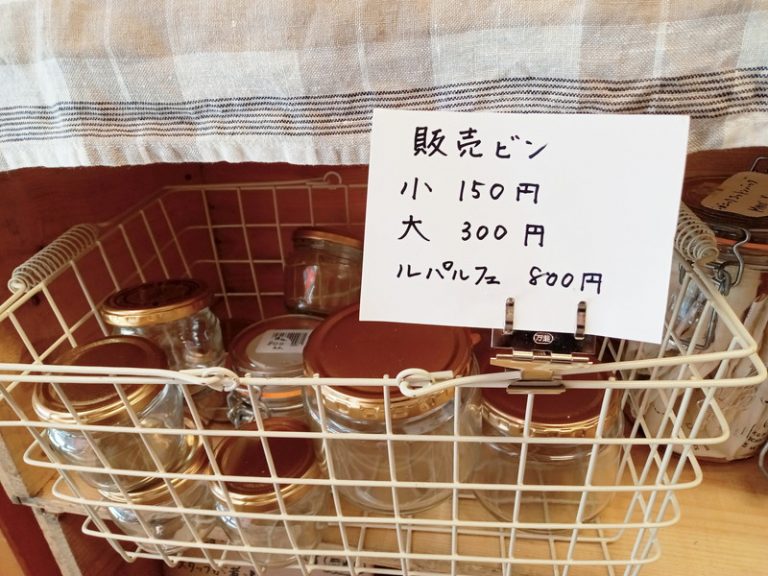 販売ビン
小 150円
大 300円
ルパルフェ 800円